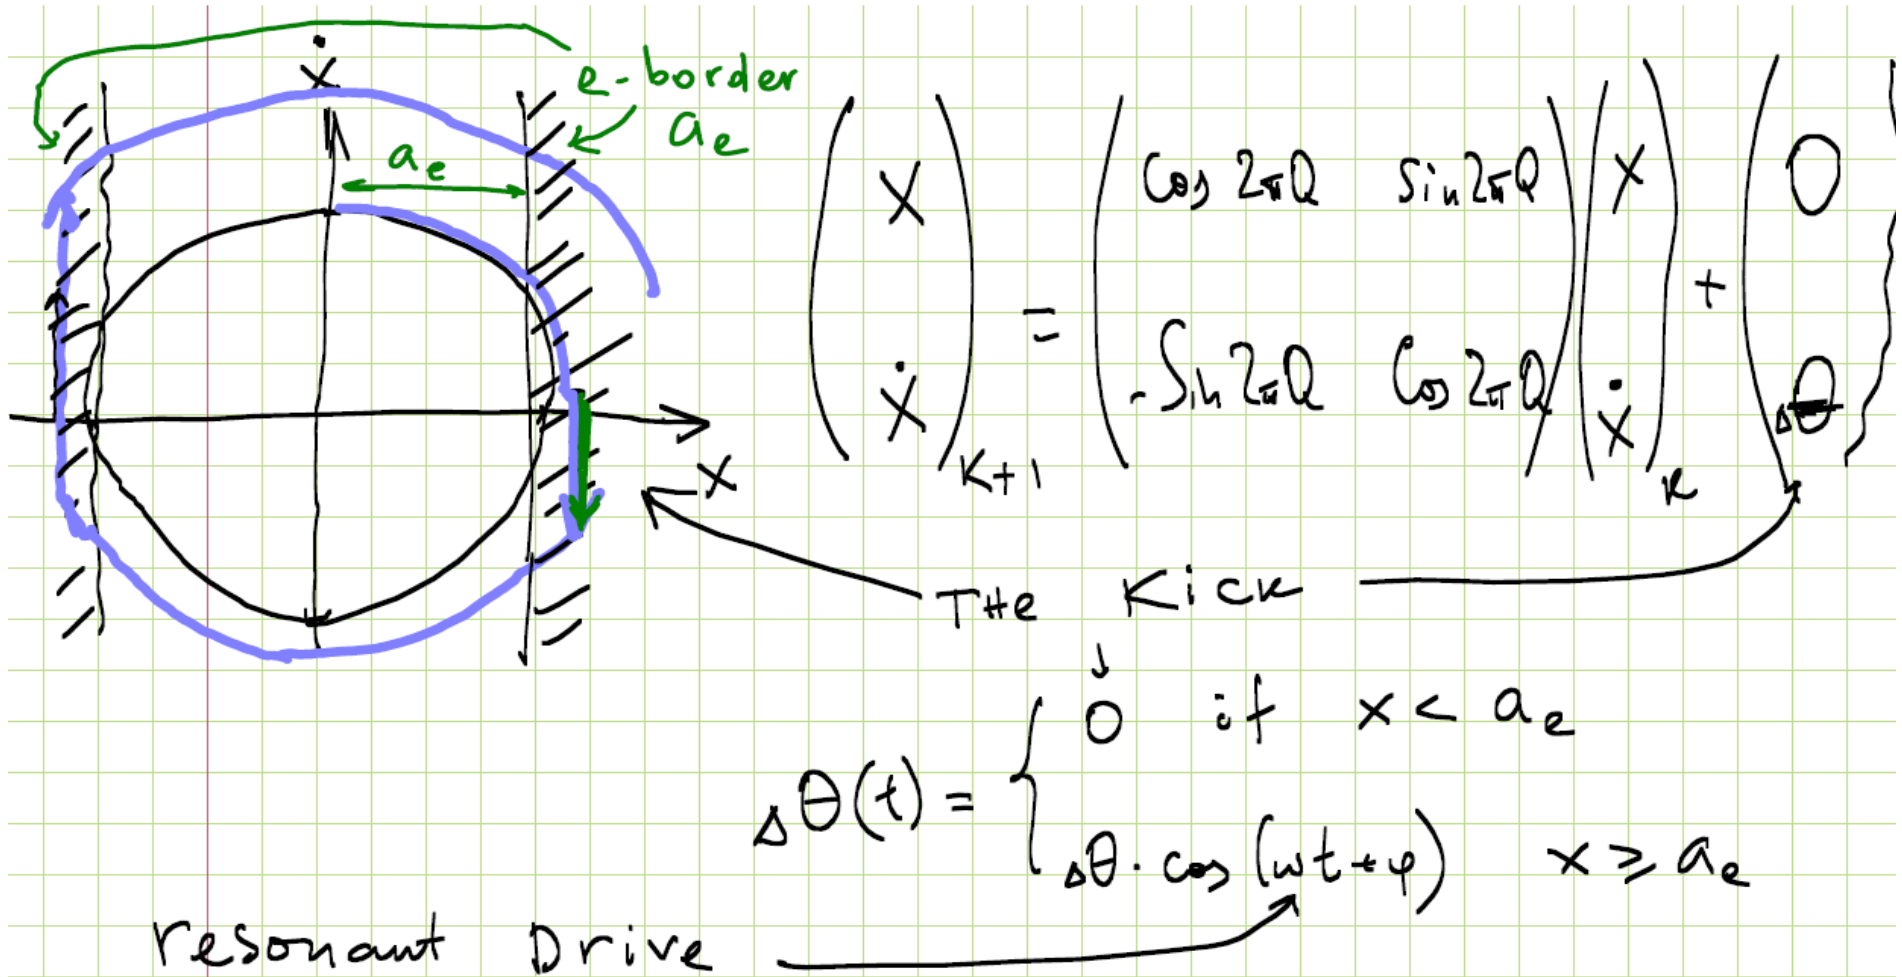 ẋ
e-border
a_e
a_e
x
(x ẋ)_{K+1} = (cos 2πQ sin 2πQ -Sin 2πQ Cos 2πQ) (x ẋ)_K + (0 Δθ)
THe Kick
Δθ(t) = { 0 if x < a_e
Δθ · cos(ωt+φ) x ≥ a_e
resonant Drive